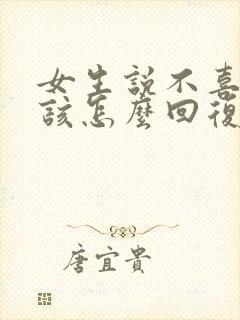 女生說不喜
該怎麼回復
唐宜貴